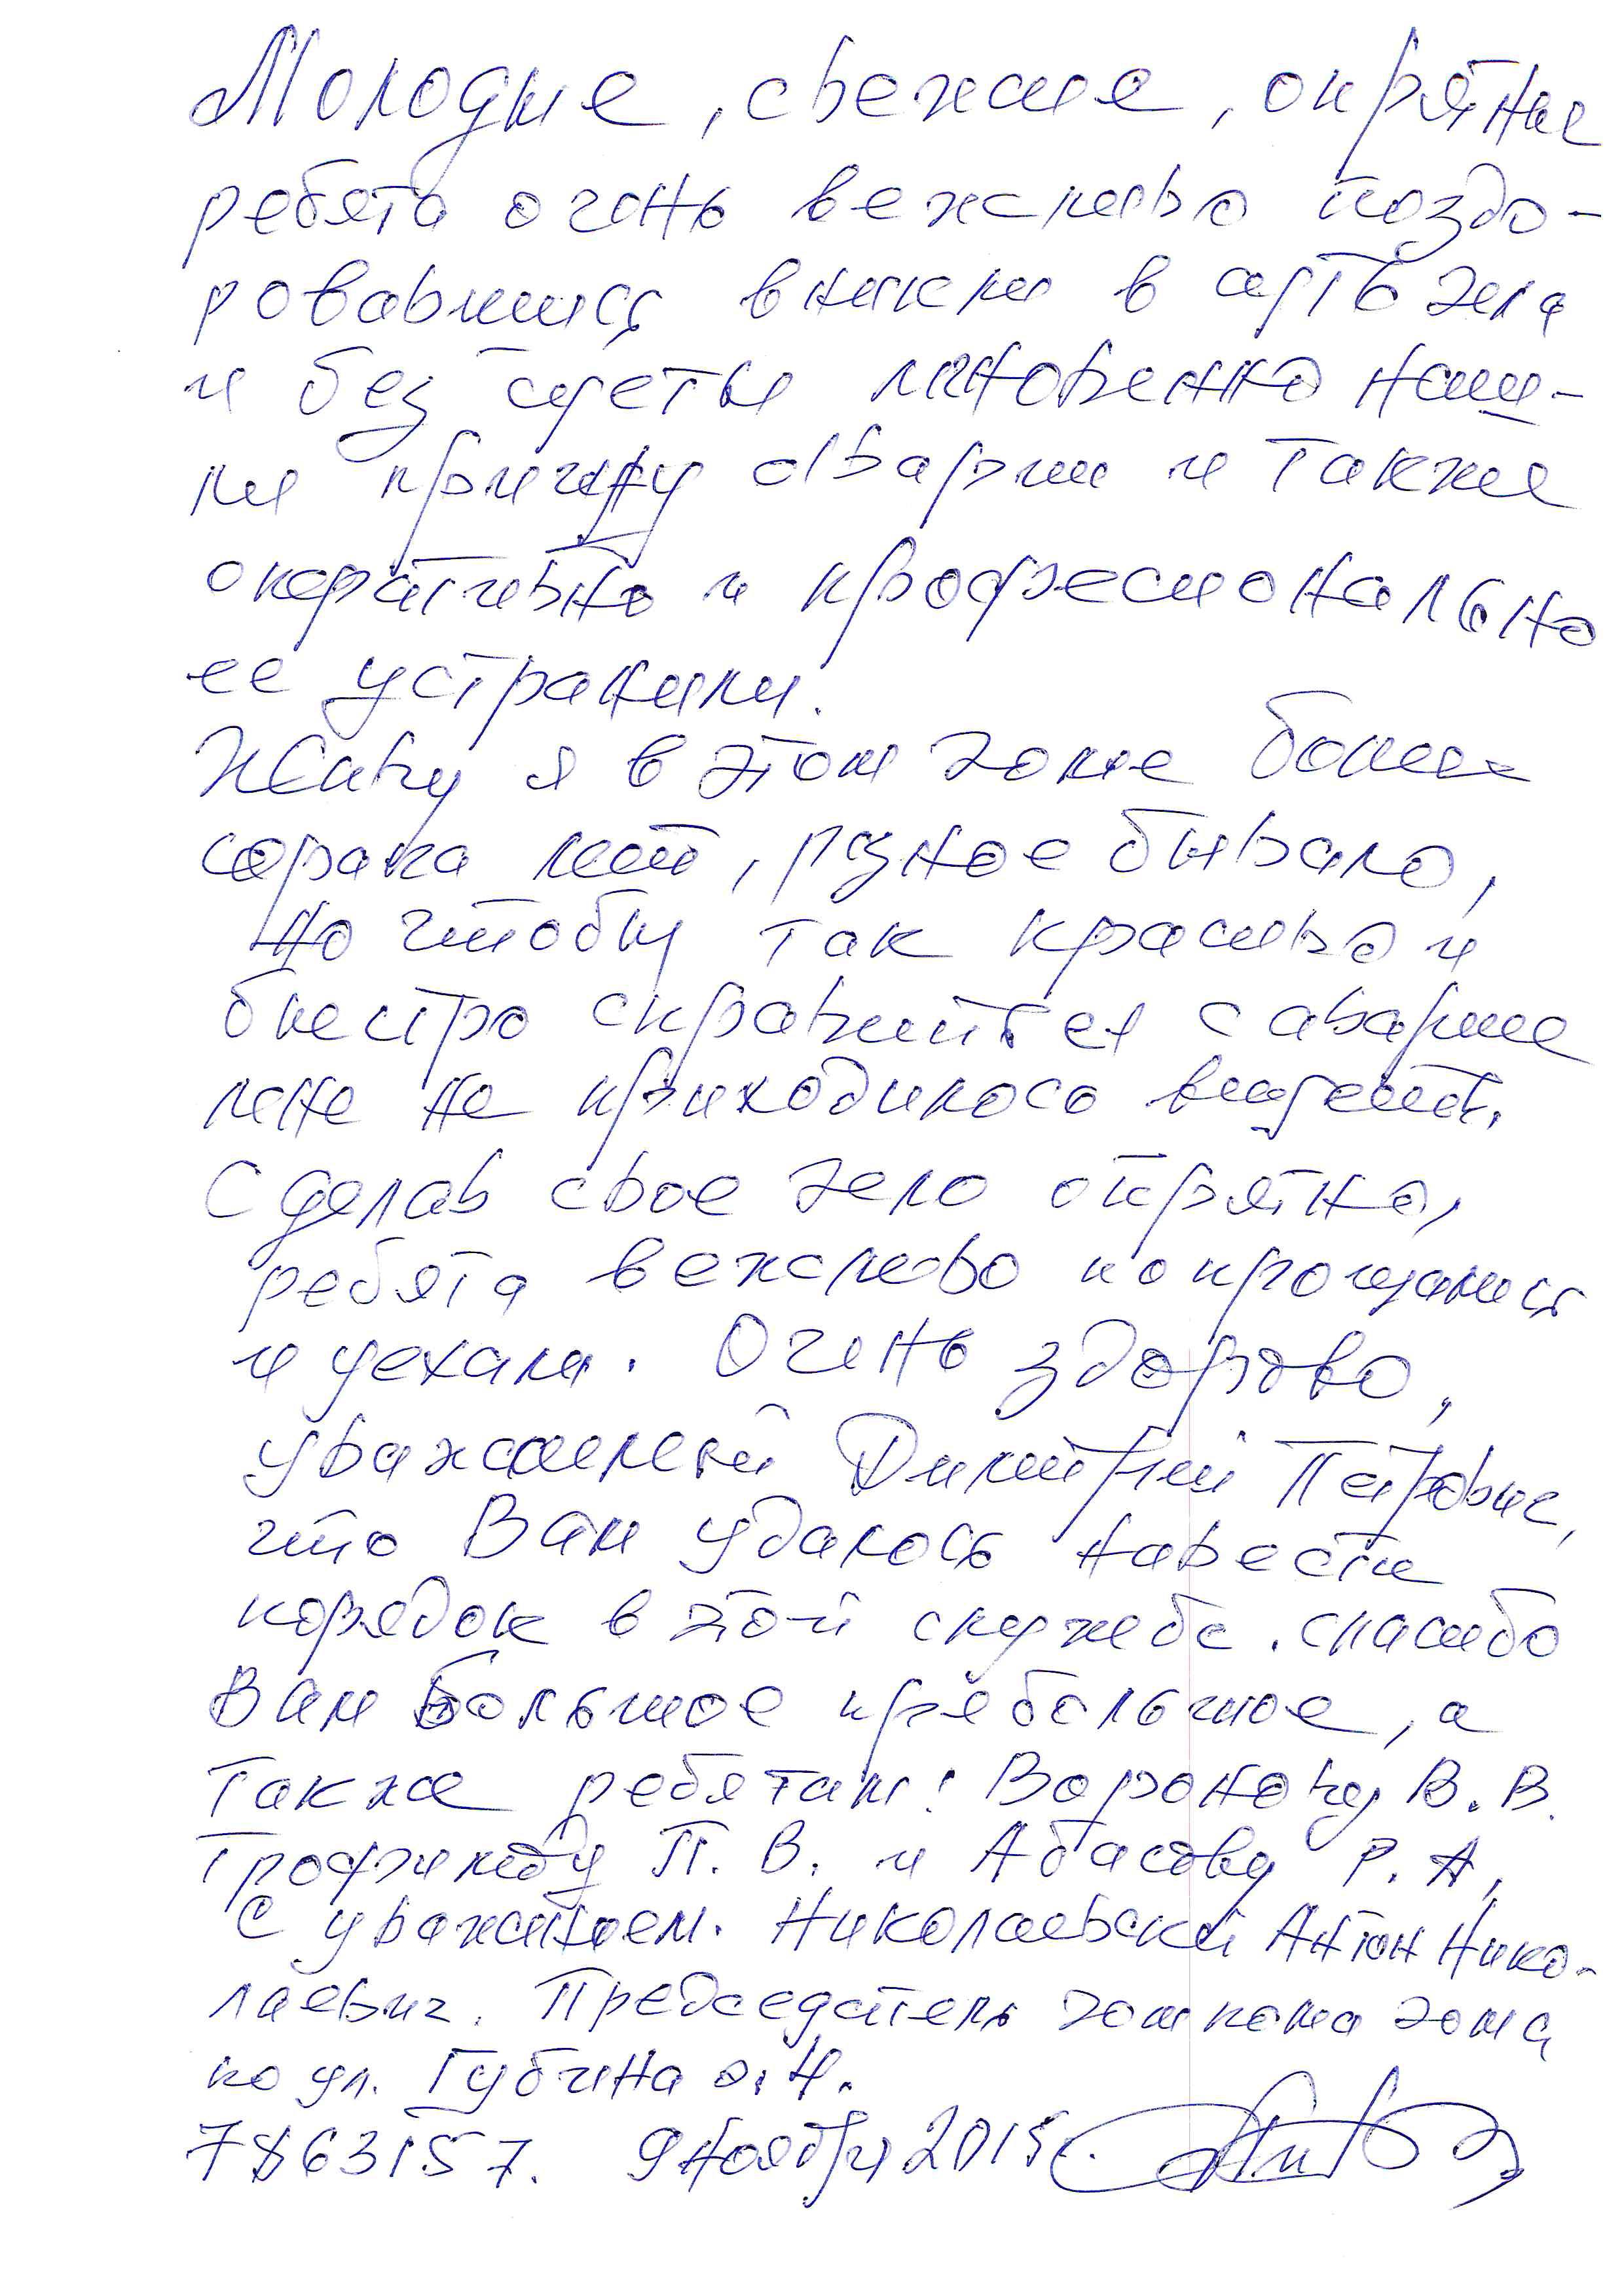 Молодые, свежие, опрятные
ребята очень вежливо поздо-
ровавшись вникли в суть дела
и без суеты мгновенно наш-
ли причину аварии и также
оперативно и профессионально
ее устранили.
Живу я в этом доме более
сорока лет, разное бывало,
но чтобы так красиво и
быстро справиться с аварией
мне не приходилось видеть.
Сделав свое дело опрятно,
ребята вежливо попрощались
и уехали. Очень здорово,
уважаемый Дмитрий Петрович,
что Вам удалось навести
порядок в этой службе. спасибо
Вам Большое пребольшое, а
также ребятам: Воронову В.В.
Трофимову П.В. и Абасову Р.А,
С уважением. Николаевский Антон Нико-
лаевич. Председатель домкома дома
по ул. Губина д.4.
7863157. 9 ноября 2015г.